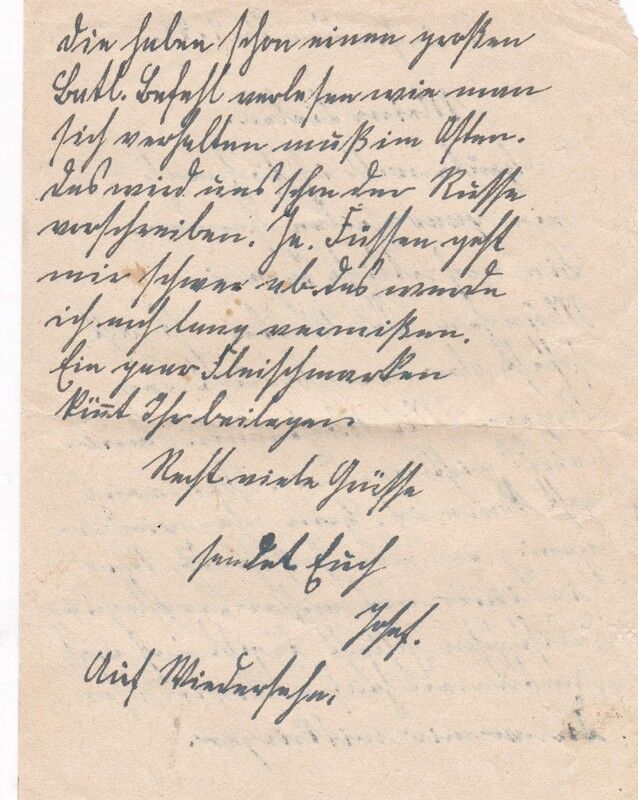 Die haben schon einen großen
Batl. Befehl verlesen wie man
sich verhalten muß im Osten.
Das wird uns schon der Russe
vorschreiben. In. Füssen geht
mir schwer ab. Das werde
ich noch lang vermißen.
Ein paar Fleischmarken
könnt Ihr beilegen
Recht viele Grüsse
sendet Euch
Josef.
Auf Wiedersehn.